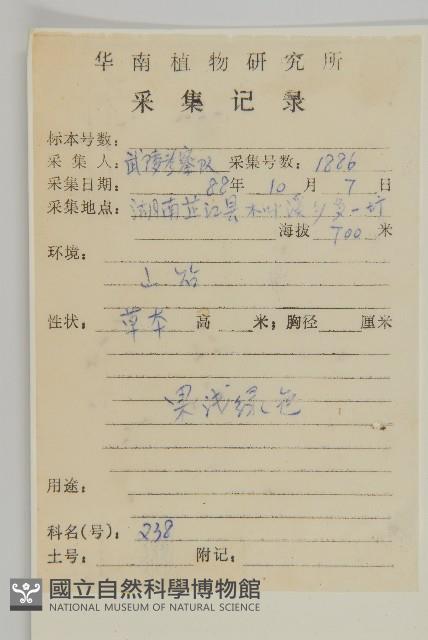 华南植物研究所
采集记录
标本号数:
采集人: 武陵考察队 采集号数: 1886
采集日期: 88年 10月 7日
采集地点: 湖南芷江县木叶溪乡
海拔 700 米
环境:
山谷
性状: 草本 高 米; 胸径 厘米
果浅绿色
用途:
科名(号): 238
土号: 附记:
國立自然科學博物館
NATIONAL MUSEUM OF NATURAL SCIENCE